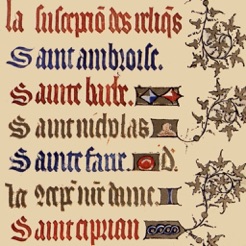 la suscepciõ des reliq̃s
Saint ambroise.
Sainte barbe.
Saint nicholas
Sainte fare. D.
la ꝯcepc̃ nr̃e dame.
Saint ciprian